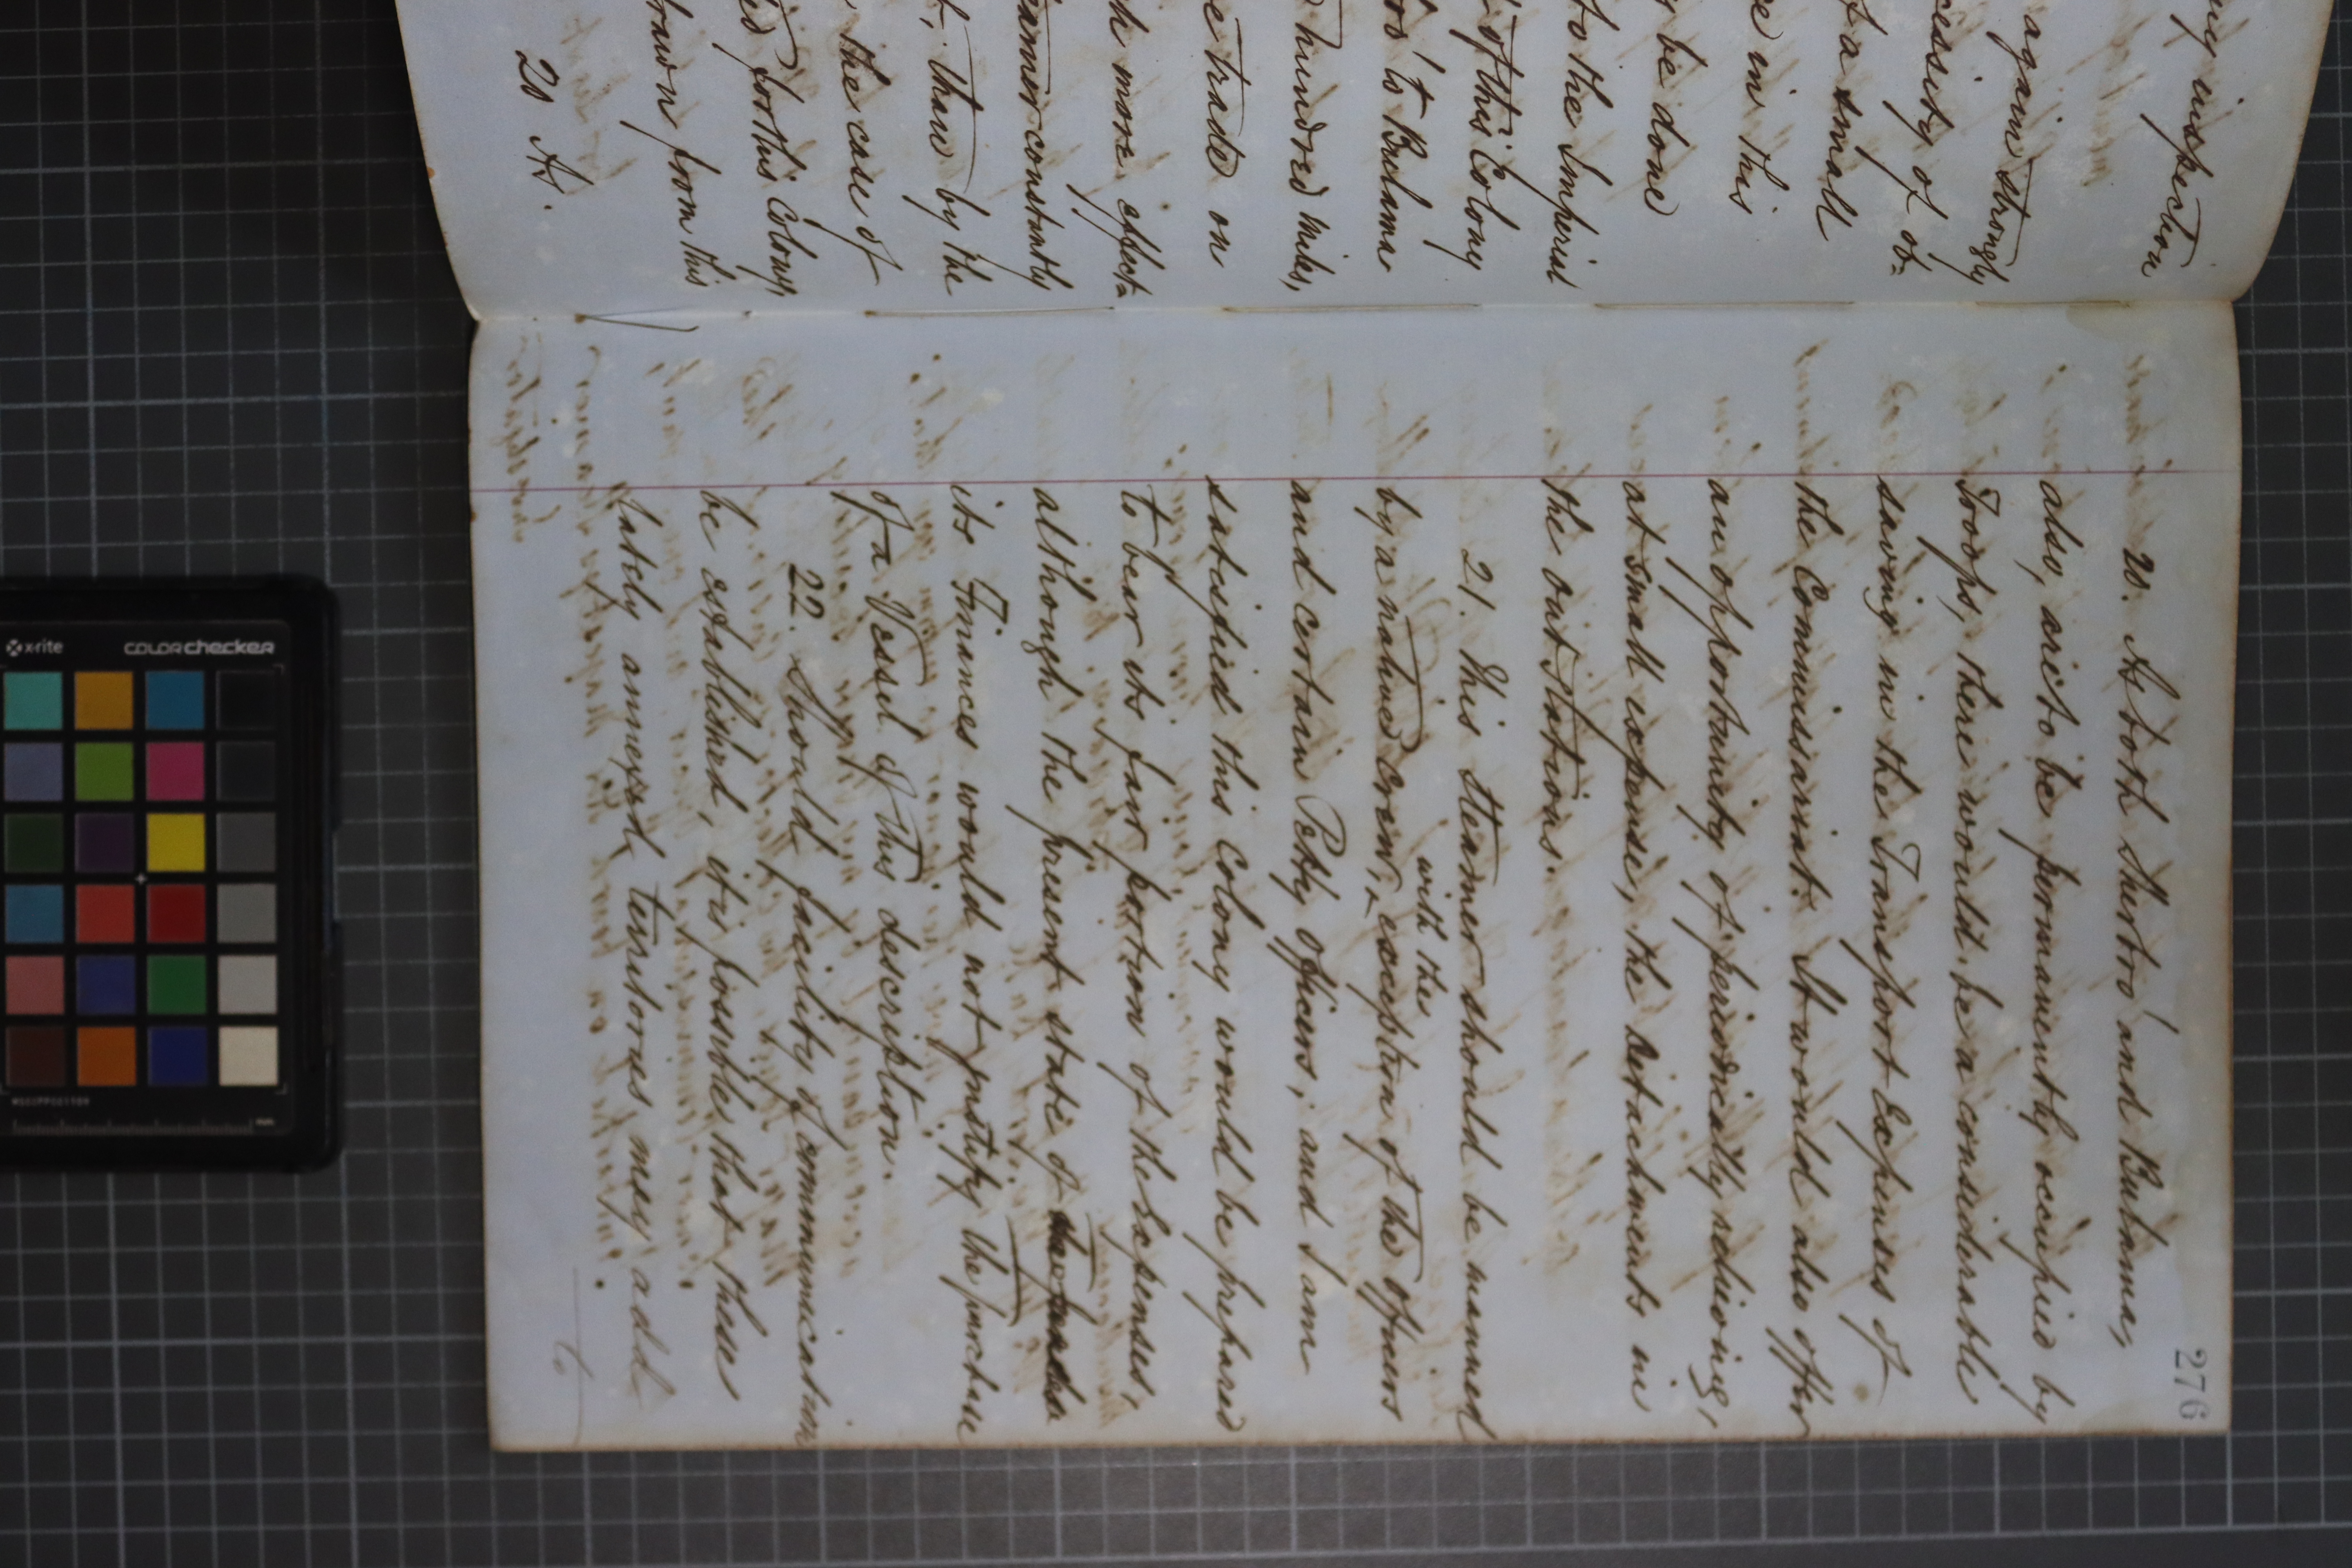 ing inspection
again strongly
cessity of ob=
f a small
e in this
y be done
to the Imperial
of this Colony
bro' to Bulama
hundred miles,
e trade on
h more effect=
eamer constantly
t, than by the
the case of
ed for this Colony,
drawn from this
20 At.
276
20. At both Sherbro' and Bulama,
also, are to be permanently occupied by
Troops, there would be a considerable
saving in the Transport Expenses of
the Commissariat. It would also offer
an opportunity of periodically relieving,
at small expense, the detachments in
the out stations.
21. This Steamer should be manned
by a native Crew, with the exception of the officers
and certain Petty officers, and I am
satisfied this Colony would be prepared
to bear its fair portion of the expenses,
although the present state of
its Finances would not justify the purchase
of a Vessel of this description.
22. Should facility of communication
be established, it is possible that these
lately annexed territories may add
to
x-rite
colorchecker